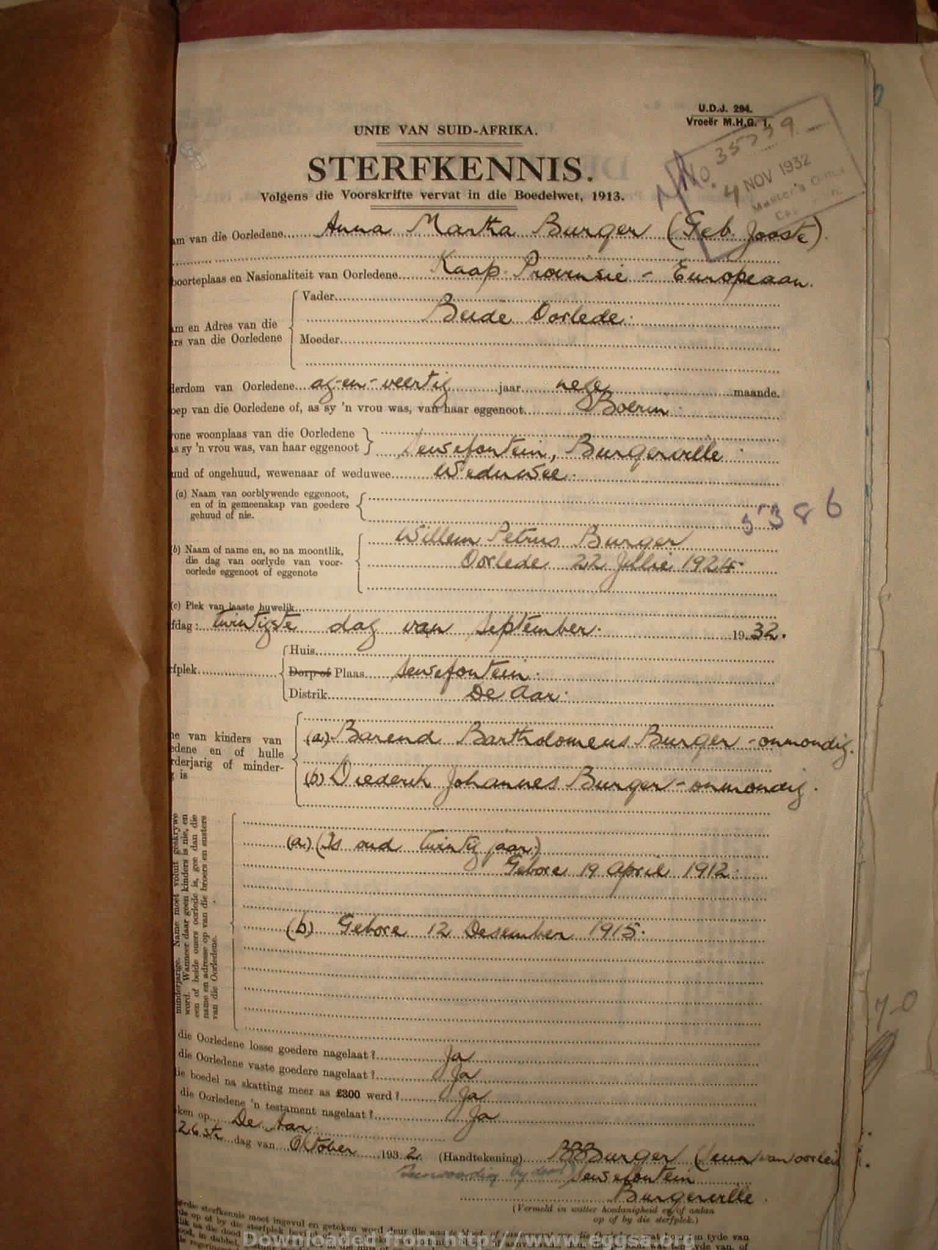 U.D.J. 294.
Vroeër M.H.G. 1.
UNIE VAN SUID-AFRIKA.
No. 35739
4 NOV 1932
STERFKENNIS.
Volgens die Voorskrifte vervat in die Boedelwet, 1913.
am van die Oorledene Anna Martha Burger (Geb. Jooste)
boorteplaas en Nasionaliteit van Oorledene Kaap Provinsie - Europeaan.
Vader
am en Adres van die
ers van die Oorledene
Beide Oorlede.
Moeder
derdom van Oorledene ag-en-veertig jaar nege maande.
oep van die Oorledene of, as sy 'n vrou was, van haar eggenoot Boerin.
one woonplaas van die Oorledene
as sy 'n vrou was, van haar eggenoot Leeuefontein, Burgerville
uud of ongehuud, wewenaar of weduwee Weduwee.
(a) Naam van oorblywende eggenoot,
en of in gemeenskap van goedere
gehuud of nie.
5386
Willem Petrus Burger
(b) Naam of name en, so na moontlik,
die dag van oorlyde van voor-
oorlede eggenoot of eggenote
Oorlede 22 Julie 1924.
(c) Plek van laaste huwelik
fdag: twintigste dag van September. 1932.
Huis
rfplek Dorp of Plaas
Distrik De Aar.
ne van kinders van
edene en of hulle
rderjarig of minder-
g is
(a) Barend Bartholomeus Burger - onmondig.
(b) Diederik Johannes Burger - onmondig.
minderjarige. Name moet voluit geskrywe
word. Wanneer daar geen kinders is nie, en
een of beide ouers oorlede is, gee dan die
name en adresse op van die broers en susters
van die Oorledene.
(a) (Is oud twintig jaar)
Gebore 19 April 1912.
(b) Gebore 12 Desember 1915.
70
die Oorledene losse goedere nagelaat? Ja
die Oorledene vaste goedere nagelaat? Ja
ie boedel na skatting meer as £300 werd? Ja
die Oorledene 'n testament nagelaat? Ja
ken op De Aar
26st. dag van Oktober 1932. (Handtekening) BBBurger (seun van oorlede
Teenwoordig by dood
Burgerville
(Vermeld in watter hoedanigheid en of aldan
op of by die sterfplek.)
Downloaded from http://www.eggsa.org